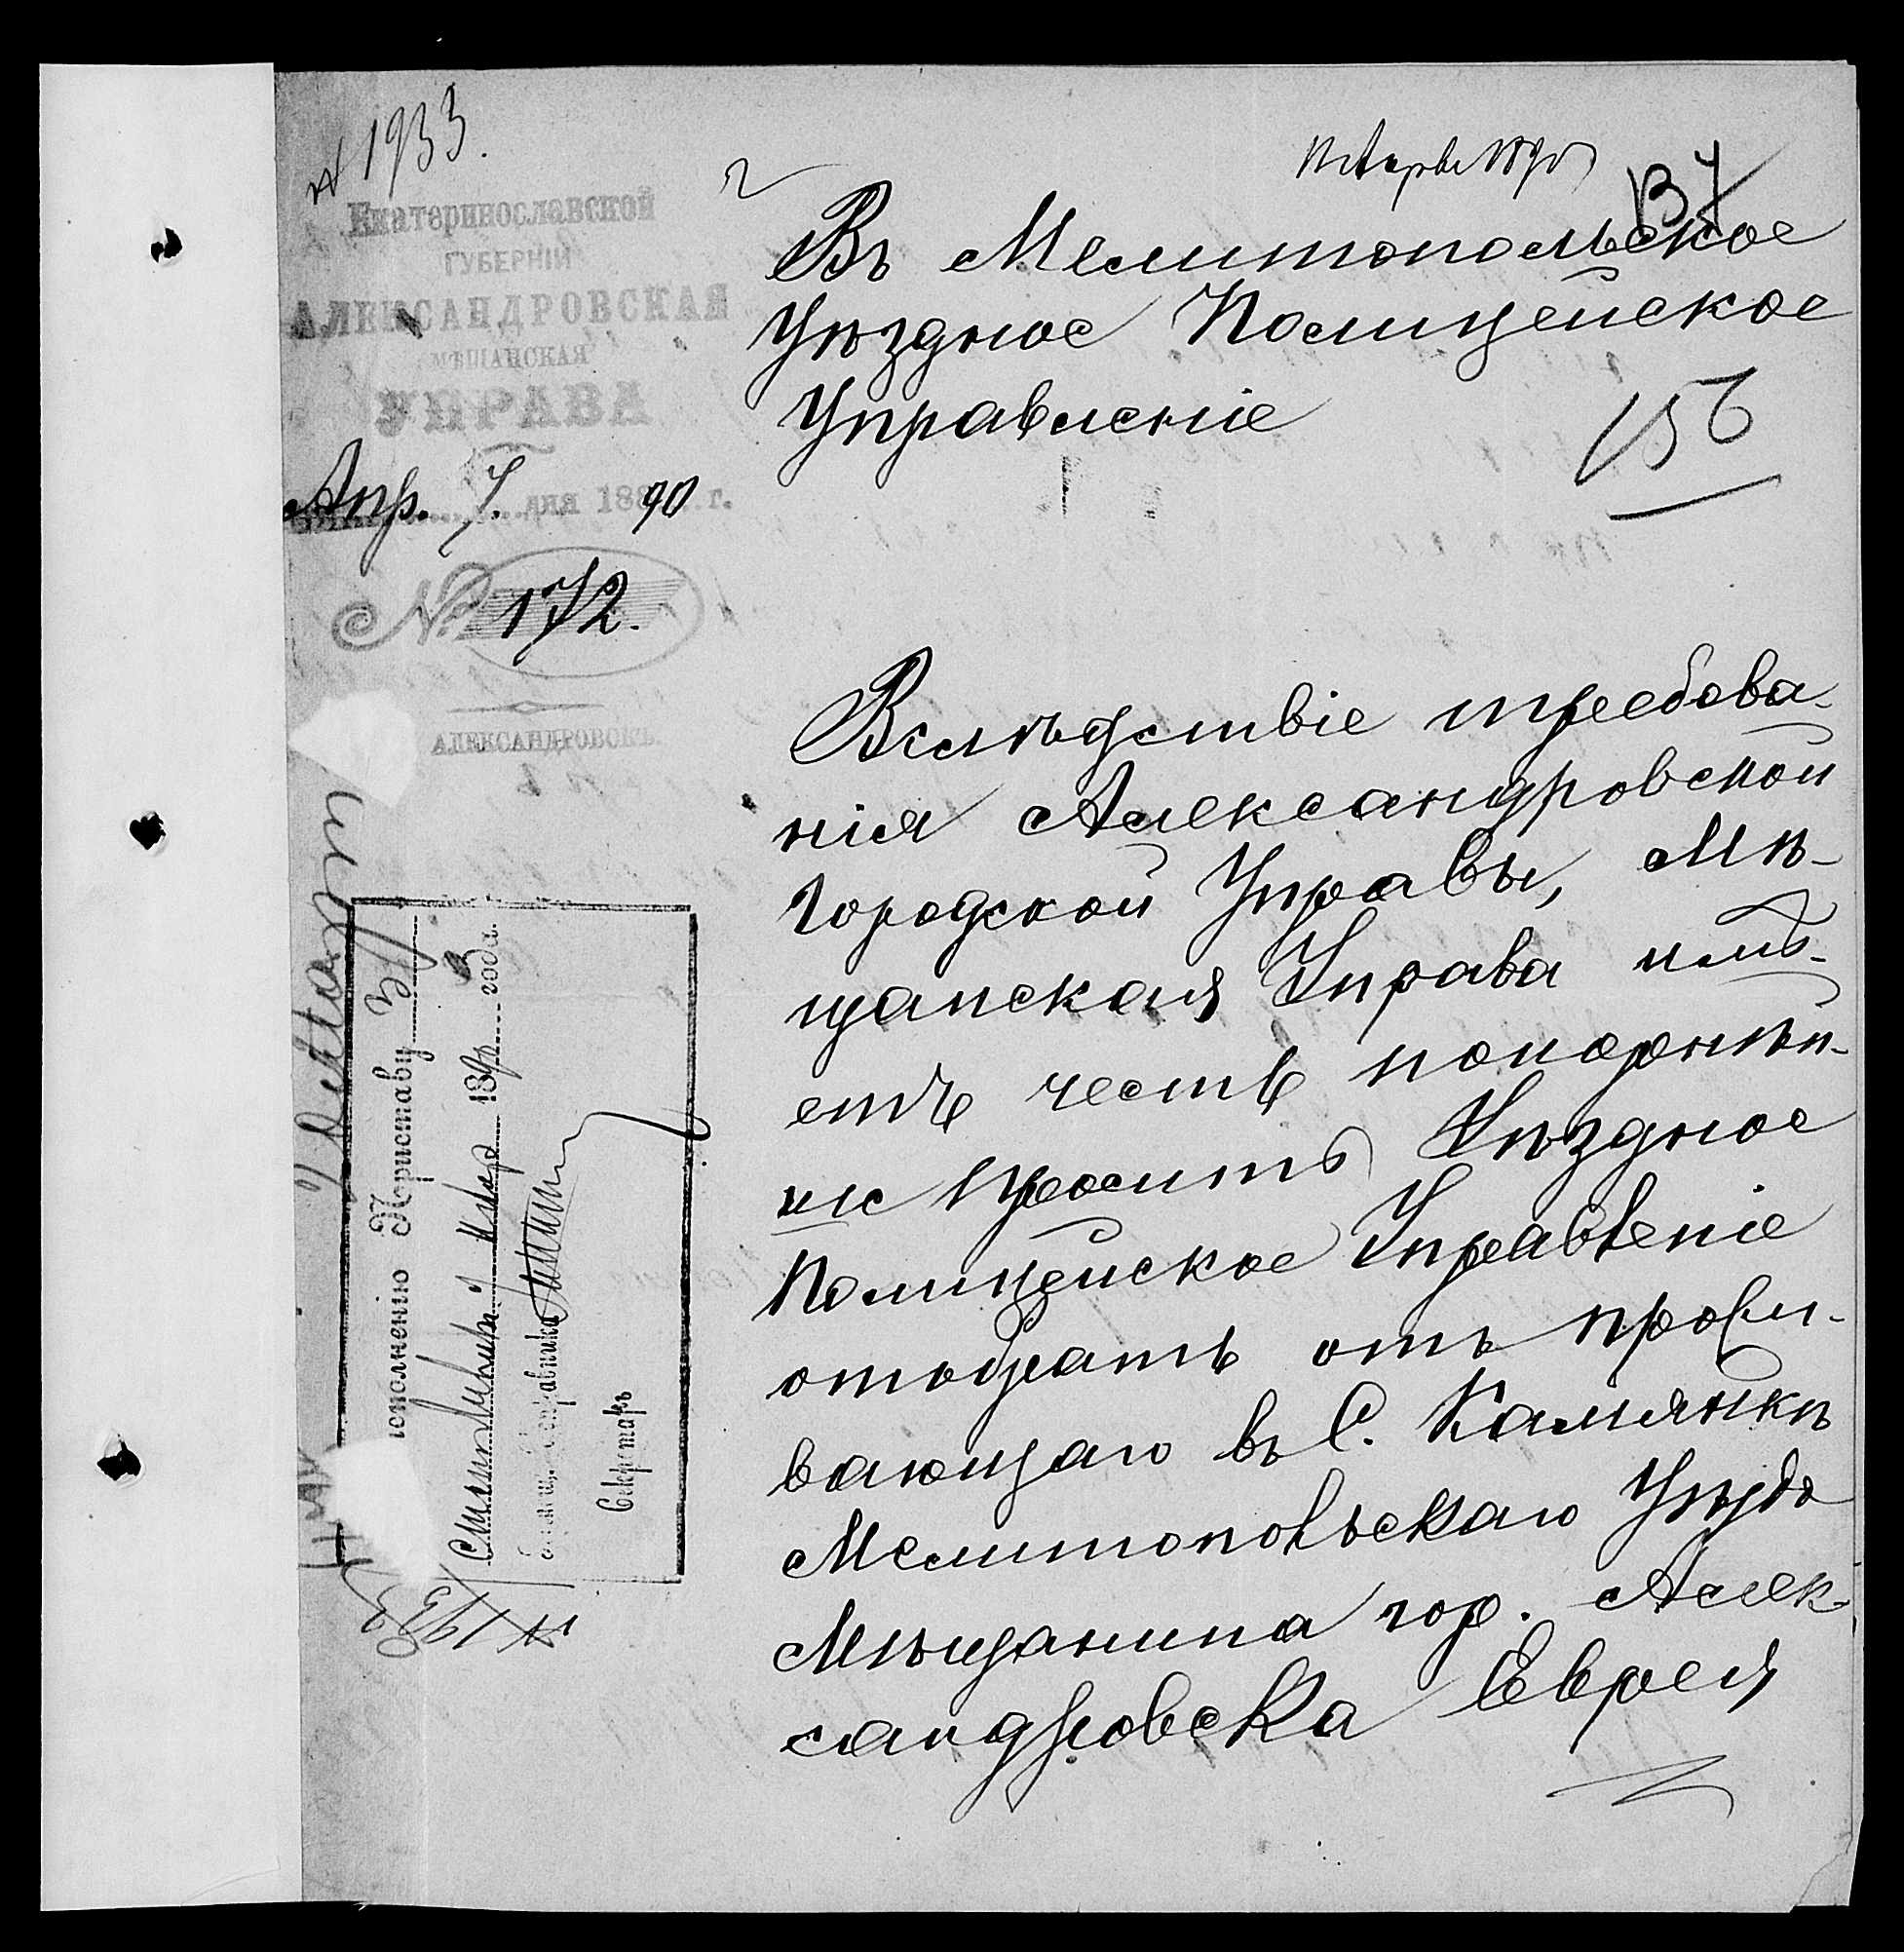 № 1933.
Екатеринославской
ГУБЕРНІИ
АЛЕКСАНДРОВСКАЯ
МѢЩАНСКАЯ
УПРАВА
Апр. 7. дня 188 90 г.
№ 172.
АЛЕКСАНДРОВСКЪ.
Въ Мелитопольское
Уѣздное Полицейское
Управленіе
Вслѣдствіе требова-
нія Александровской
Городской Управы, Мѣ-
щанская Управа имѣ-
етъ честь покорнѣй-
ше просить Уѣздное
Полицейское Управленіе
отобрать отъ прожи-
вающаго въ С. Камянкѣ
Мелитопольскаго Уѣзда
Мѣщанина гор. Алек-
сандровска Еврея
исполненію Приставу
189 года.
Исправника
Секретарь
№ 1933